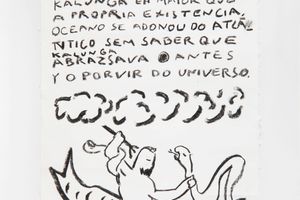 KALUNGA ER MAIOR QUE
A PROPRIA EXISTENCIA,
OCEANO SE ADONOU DO ATLÂ
NTICO SEM SABER QUE
KALUNGA
ABRAZSAVA O ANTES
Y O PORVIR DO UNIVERSO.